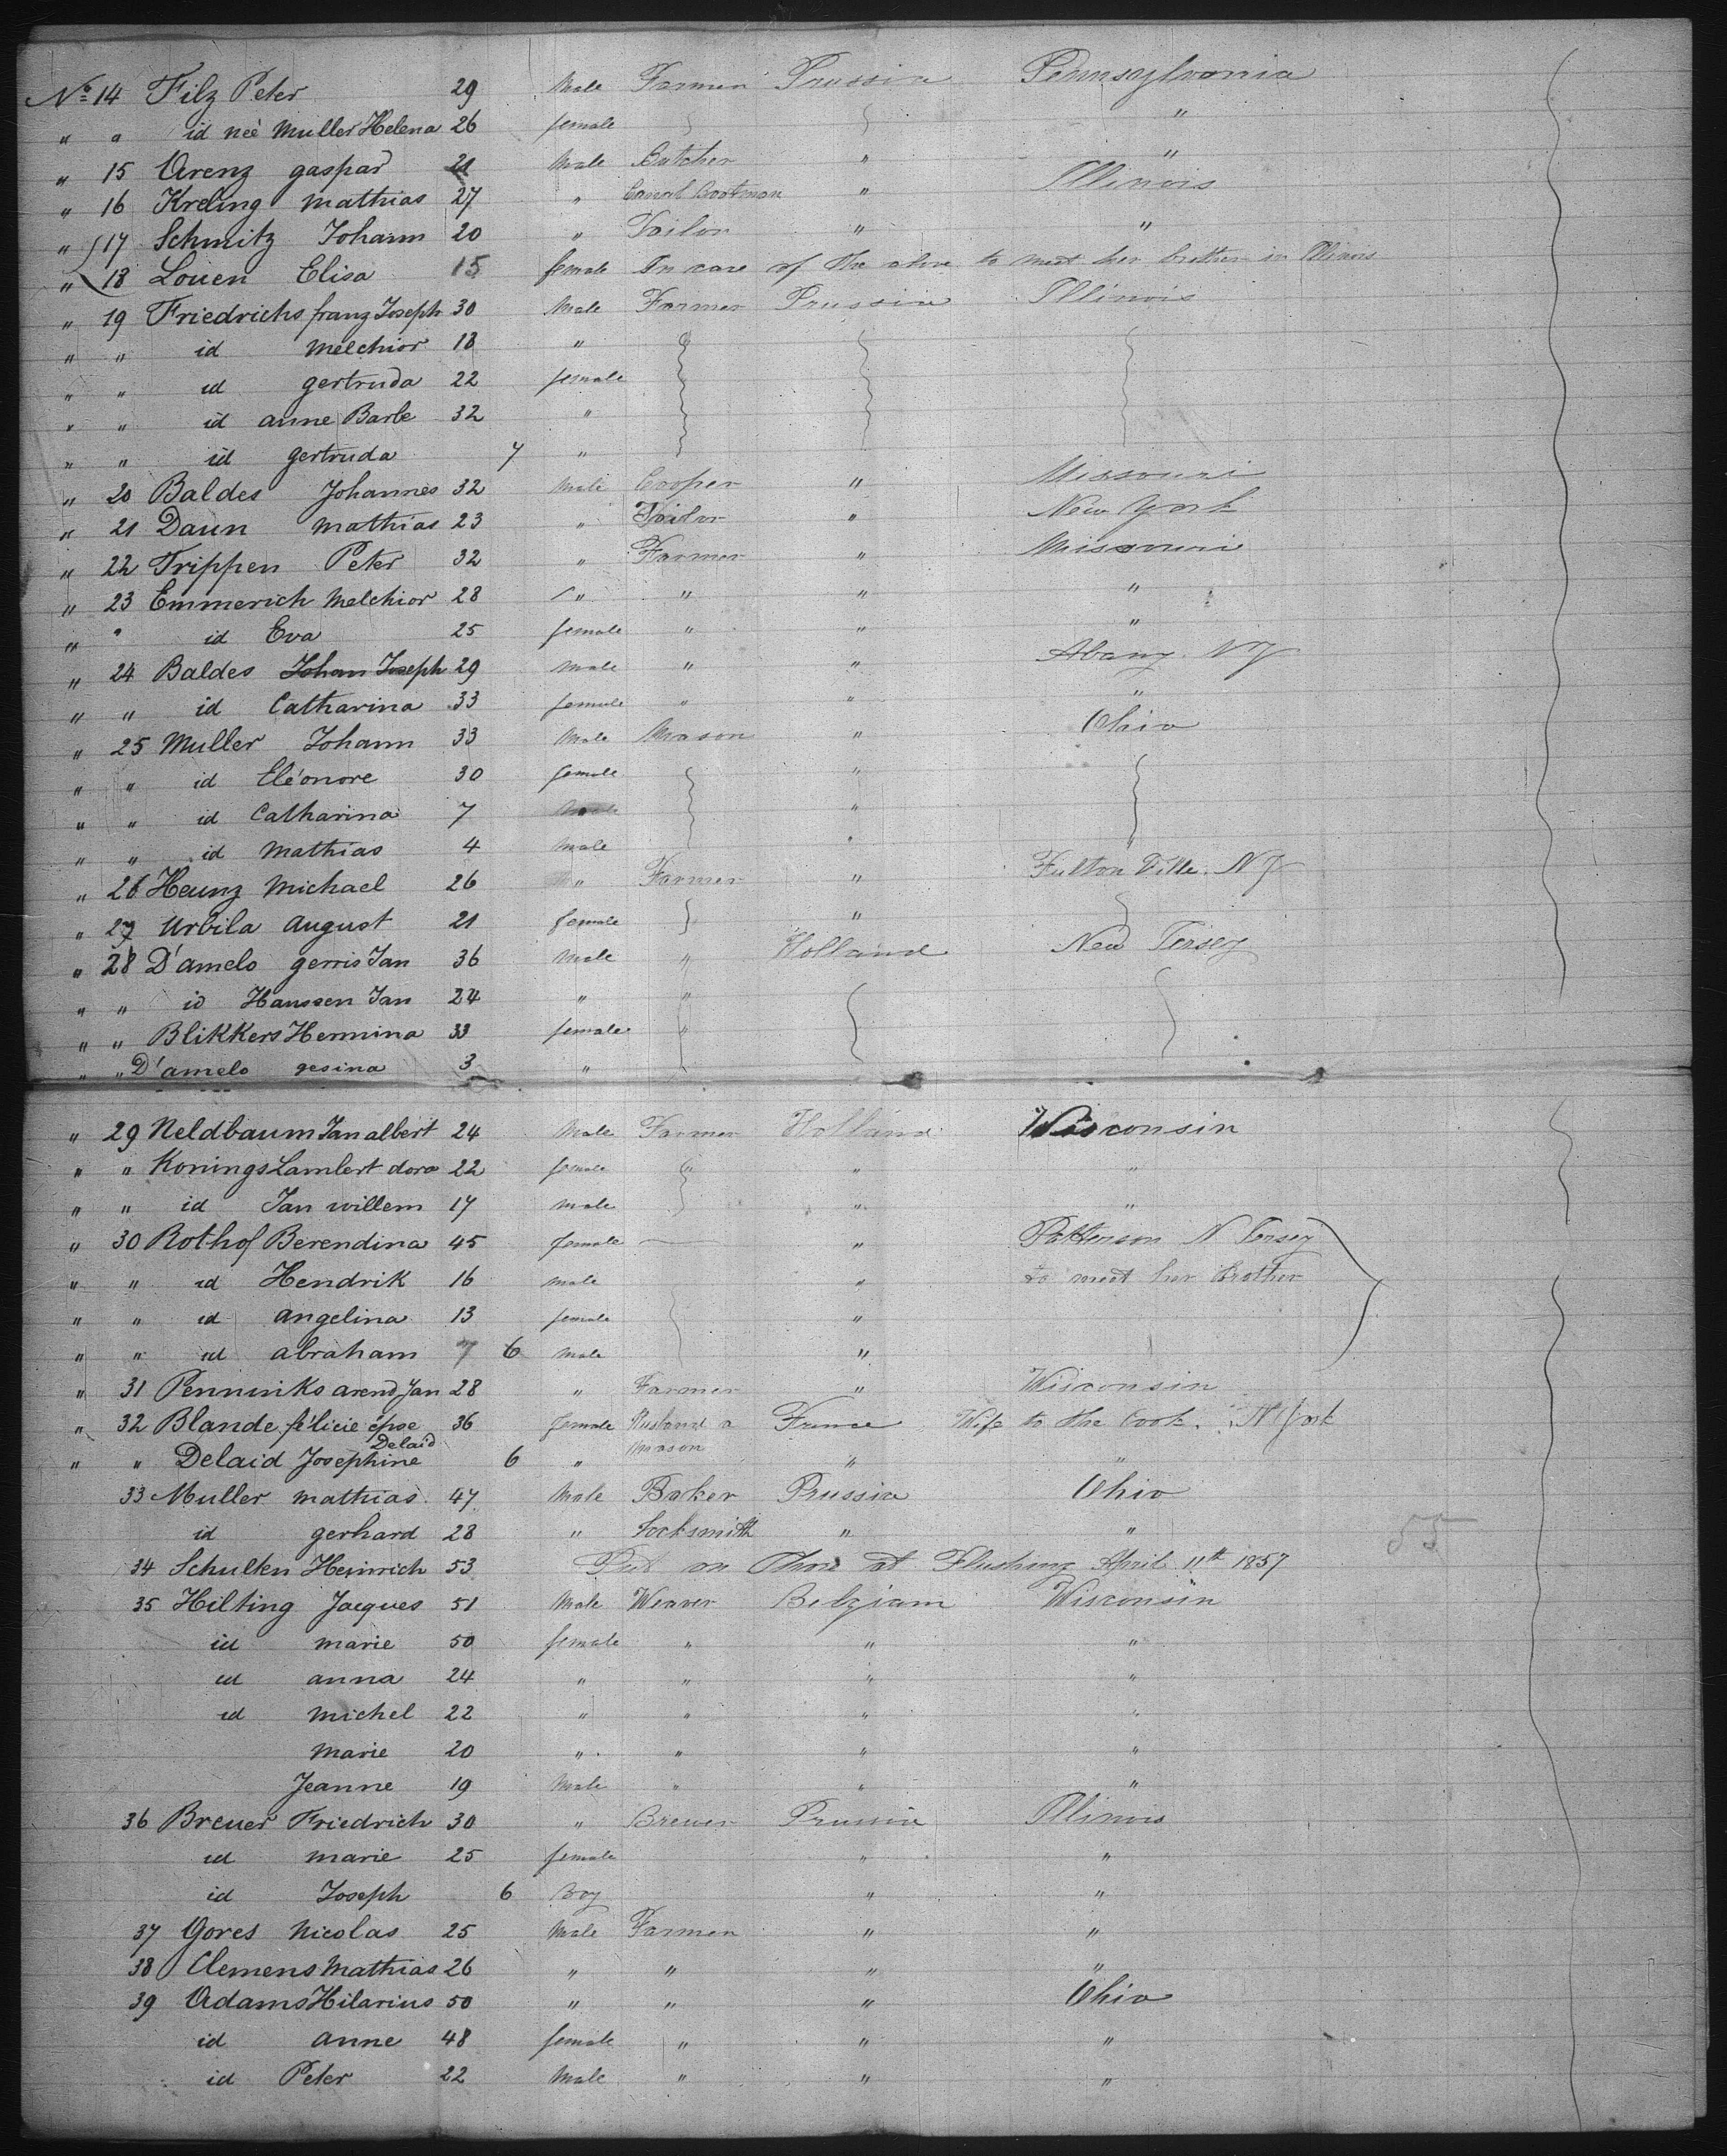 No 14 Filz Peter 29 Male Farmer Prussia Pennsylvania
" " id neé Muller Helena 26 female "
" 15 Arenz gaspar 21 Male Butcher " "
" 16 Kreling mathias 27 " Canal Boatman " Illinois
" 17 Schmitz Johann 20 " Tailor " "
" 18 Louen Elisa 15 female In care of the above to meet her brother in Illinois
" 19 Friedrichs franz Joseph 30 Male Farmer Prussia Illinois
" " id melchior 18 "
" " id gertruda 22 female
" " id anne Barbe 32 "
" " id gertruda 7 "
" 20 Baldes Johannes 32 Male Cooper " Missouri
" 21 Daun mathias 23 " Tailor " New York
" 22 Trippen Peter 32 " Farmer " Missouri
" 23 Emmerich Melchior 28 " " " "
" " id Eva 25 female " " "
" 24 Baldes Johan Joseph 29 Male " " Abany. N Y
" " id Catharina 33 female " " "
" 25 Muller Johann 33 Male Mason " Ohio
" " id Eléonore 30 female "
" " id Catharina 7 Male "
" " id Mathias 4 Male "
" 26 Heunz Michael 26 " Farmer " Fulton Ville. N Y
" 27 Urbila August 21 female "
" 28 D'amelo gerris Jan 36 Male " Holland New Jersey
" " id Hanssen Jan 24 " "
" " Blikkers Hermina 33 female "
" " D'amelo gesina 3 "
" 29 Neldbaum Jan albert 24 Male Farmer Holland Wisconsin
" " Konings Lambert dora 22 female " " "
" " id Jan willem 17 Male " "
" 30 Rothof Berendina 45 female — " Patterson N Jersey
" " id Hendrik 16 male " to meet her brother
" " id angelina 13 female "
" " id abraham 7 6 Male "
" 31 Penninks arend Jan 28 " Farmer " Wisconsin
" 32 Blande félicie épse 36 female Husband a France Wife to the Cook. N York
Delaid Mason
" " Delaid Josephine 6 " " "
33 Muller mathias 47 Male Baker Prussia Ohio
id gerhard 28 " Locksmith " " 55
34 Schulten Heinrich 53 Put on Shore at Flushing April 11th 1857
35 Hilting Jacques 51 Male Weaver Belgiam Wisconsin
id marie 50 female " " "
id anna 24 " " " "
id michel 22 " " " "
Marie 20 " " " "
Jeanne 19 Male " " "
36 Breuer Friedrich 30 " Brewer Prussia Illinois
id marie 25 female " "
id Joseph 6 Boy " "
37 Gores Nicolas 25 Male Farmer " "
38 Clemens Mathias 26 " " " "
39 Adams Hilarius 50 " " " Ohio
id anne 48 female " " "
id Peter 22 Male " " "